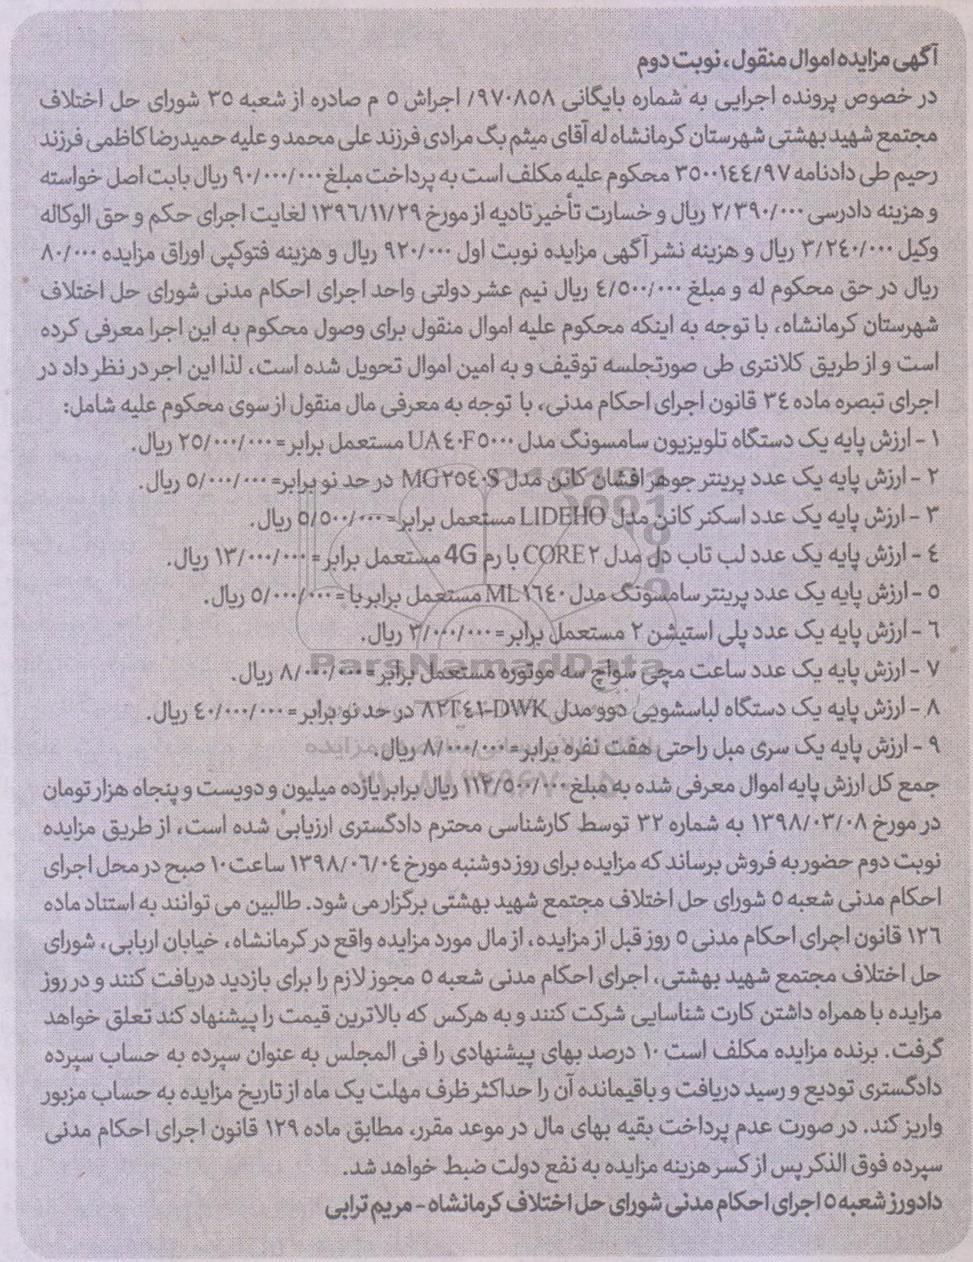 آگهی مزایده اموال منقول، نوبت دوم
در خصوص پرونده اجرایی به شماره بایگانی ۹۷۰۸۵۸/ اجراش ۵ م صادره از شعبه ۳۵ شورای حل اختلاف
مجتمع شهید بهشتی شهرستان کرمانشاه له آقای میثم بگ مرادی فرزند علی محمد و علیه حمیدرضا کاظمی فرزند
رحیم طی دادنامه ۳۵۰۰۱٤٤/۹۷ محکوم علیه مکلف است به پرداخت مبلغ ۹۰/۰۰۰/۰۰۰ ریال بابت اصل خواسته
و هزینه دادرسی ۲/۳۹۰/۰۰۰ ریال و خسارت تأخیر تادیه از مورخ ۱۳۹٦/۱۱/۲۹ لغایت اجرای حکم و حق الوکاله
وکیل ۳/۲٤۰/۰۰۰ ریال و هزینه نشر آگهی مزایده نوبت اول ۹۲۰/۰۰۰ ریال و هزینه فتوکپی اوراق مزایده ۸۰/۰۰۰
ریال در حق محکوم له و مبلغ ٤/۵۰۰/۰۰۰ ریال نیم عشر دولتی واحد اجرای احکام مدنی شورای حل اختلاف
شهرستان کرمانشاه، با توجه به اینکه محکوم علیه اموال منقول برای وصول محکوم به این اجرا معرفی کرده
است و از طریق کلانتری طی صورتجلسه توقیف و به امین اموال تحویل شده است، لذا این اجر در نظر داد در
اجرای تبصره ماده ۳٤ قانون اجرای احکام مدنی، با توجه به معرفی مال منقول از سوی محکوم علیه شامل:
۱ - ارزش پایه یک دستگاه تلویزیون سامسونگ مدل UA٤۰F۵۰۰۰ مستعمل برابر= ۲۵/۰۰۰/۰۰۰ ریال.
۲ - ارزش پایه یک عدد پرینتر جوهر افشان کانن مدل MG۲۵٤۰S در حد نو برابر= ۵/۰۰۰/۰۰۰ ریال.
۳ - ارزش پایه یک عدد اسکنر کانن مدل LIDEHO مستعمل برابر= ۵/۵۰۰/۰۰۰ ریال.
٤ - ارزش پایه یک عدد لب تاب دل مدل CORE۲ با رم 4G مستعمل برابر = ۱۳/۰۰۰/۰۰۰ ریال.
۵ - ارزش پایه یک عدد پرینتر سامسونگ مدل ML۱٦٤۰ مستعمل برابر با = ۵/۰۰۰/۰۰۰ ریال.
٦ - ارزش پایه یک عدد پلی استیشن ۲ مستعمل برابر= ۳/۰۰۰/۰۰۰ ریال.
۷ - ارزش پایه یک عدد ساعت مچی سواچ سه موتوره مستعمل برابر= ۸/۰۰۰/۰۰۰ ریال.
ParsNamadData
۸ - ارزش پایه یک دستگاه لباسشویی دوو مدل ۸۲T٤۱-DWK در حد نو برابر= ٤۰/۰۰۰/۰۰۰ ریال.
۹ - ارزش پایه یک سری مبل راحتی هفت نفره برابر= ۸/۰۰۰/۰۰۰ ریال.
جمع کل ارزش پایه اموال معرفی شده به مبلغ ۱۱۲/۵۰۰/۰۰۰ ریال برابر یازده میلیون و دویست و پنجاه هزار تومان
در مورخ ۱۳۹۸/۰۳/۰۸ به شماره ۳۲ توسط کارشناسی محترم دادگستری ارزیابی شده است، از طریق مزایده
نوبت دوم حضور به فروش برساند که مزایده برای روز دوشنبه مورخ ۱۳۹۸/۰٦/۰٤ ساعت ۱۰ صبح در محل اجرای
احکام مدنی شعبه ۵ شورای حل اختلاف مجتمع شهید بهشتی برگزار می شود. طالبین می توانند به استناد ماده
۱۲٦ قانون اجرای احکام مدنی ۵ روز قبل از مزایده، از مال مورد مزایده واقع در کرمانشاه، خیابان اربابی، شورای
حل اختلاف مجتمع شهید بهشتی، اجرای احکام مدنی شعبه ۵ مجوز لازم را برای بازدید دریافت کنند و در روز
مزایده با همراه داشتن کارت شناسایی شرکت کنند و به هرکس که بالاترین قیمت را پیشنهاد کند تعلق خواهد
گرفت. برنده مزایده مکلف است ۱۰ درصد بهای پیشنهادی را فی المجلس به عنوان سپرده به حساب سپرده
دادگستری تودیع و رسید دریافت و باقیمانده آن را حداکثر ظرف مهلت یک ماه از تاریخ مزایده به حساب مزبور
واریز کند. در صورت عدم پرداخت بقیه بهای مال در موعد مقرر، مطابق ماده ۱۲۹ قانون اجرای احکام مدنی
سپرده فوق الذکر پس از کسر هزینه مزایده به نفع دولت ضبط خواهد شد.
دادورز شعبه ۵ اجرای احکام مدنی شورای حل اختلاف کرمانشاه - مریم ترابی